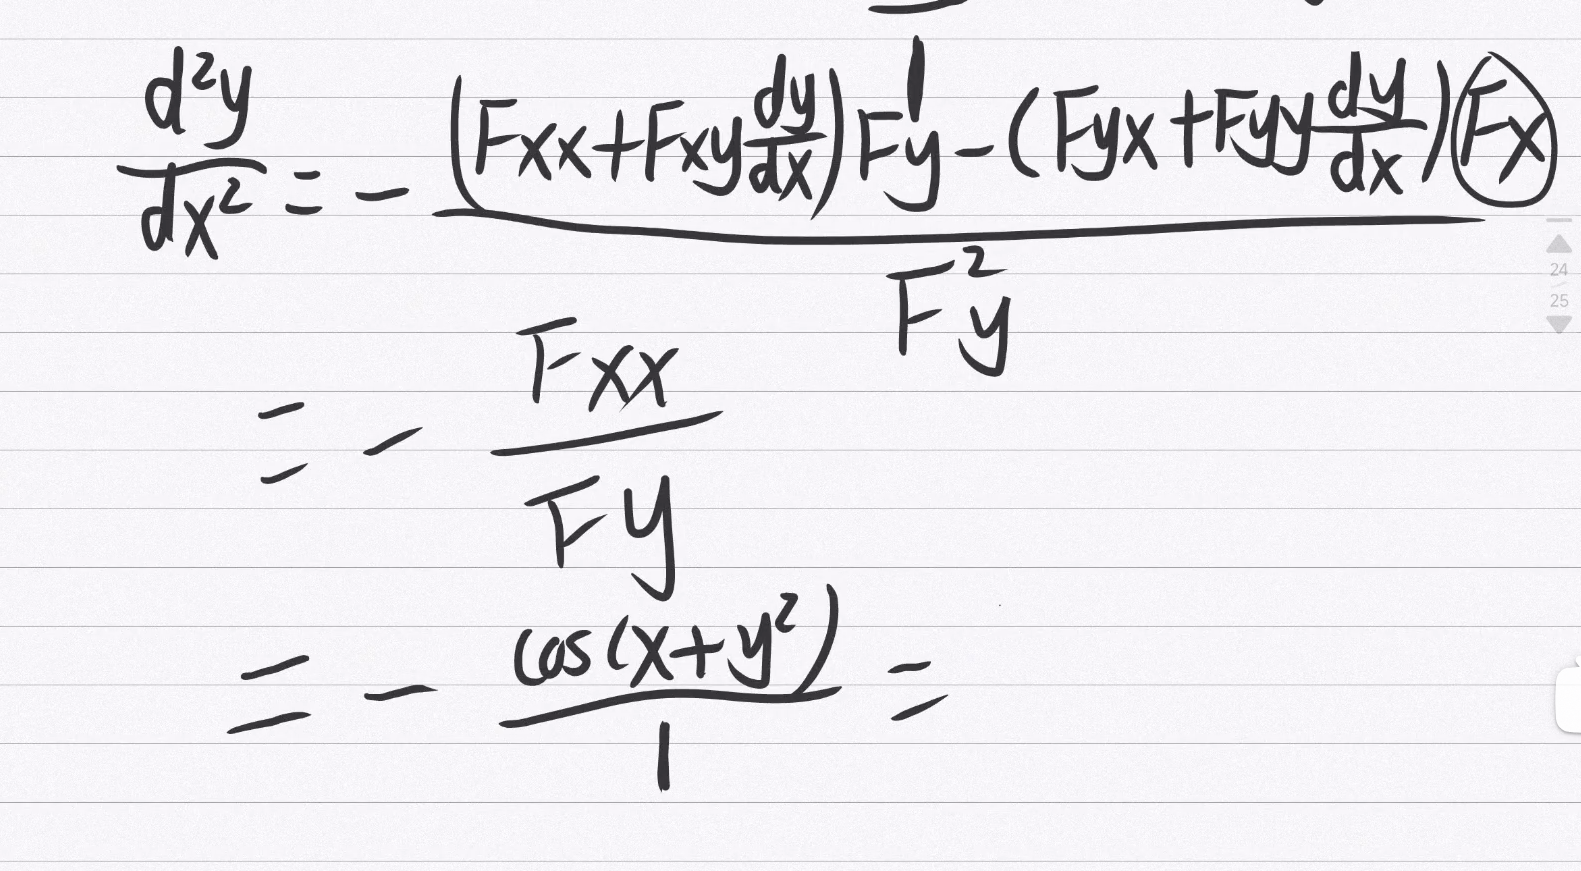 d²y/dx² = - ((Fxx + Fxy dy/dx) Fy - (Fyx + Fyy dy/dx) Fx) / F²y
= - Fxx / Fy
= - cos(x+y²) / 1 =
24
25